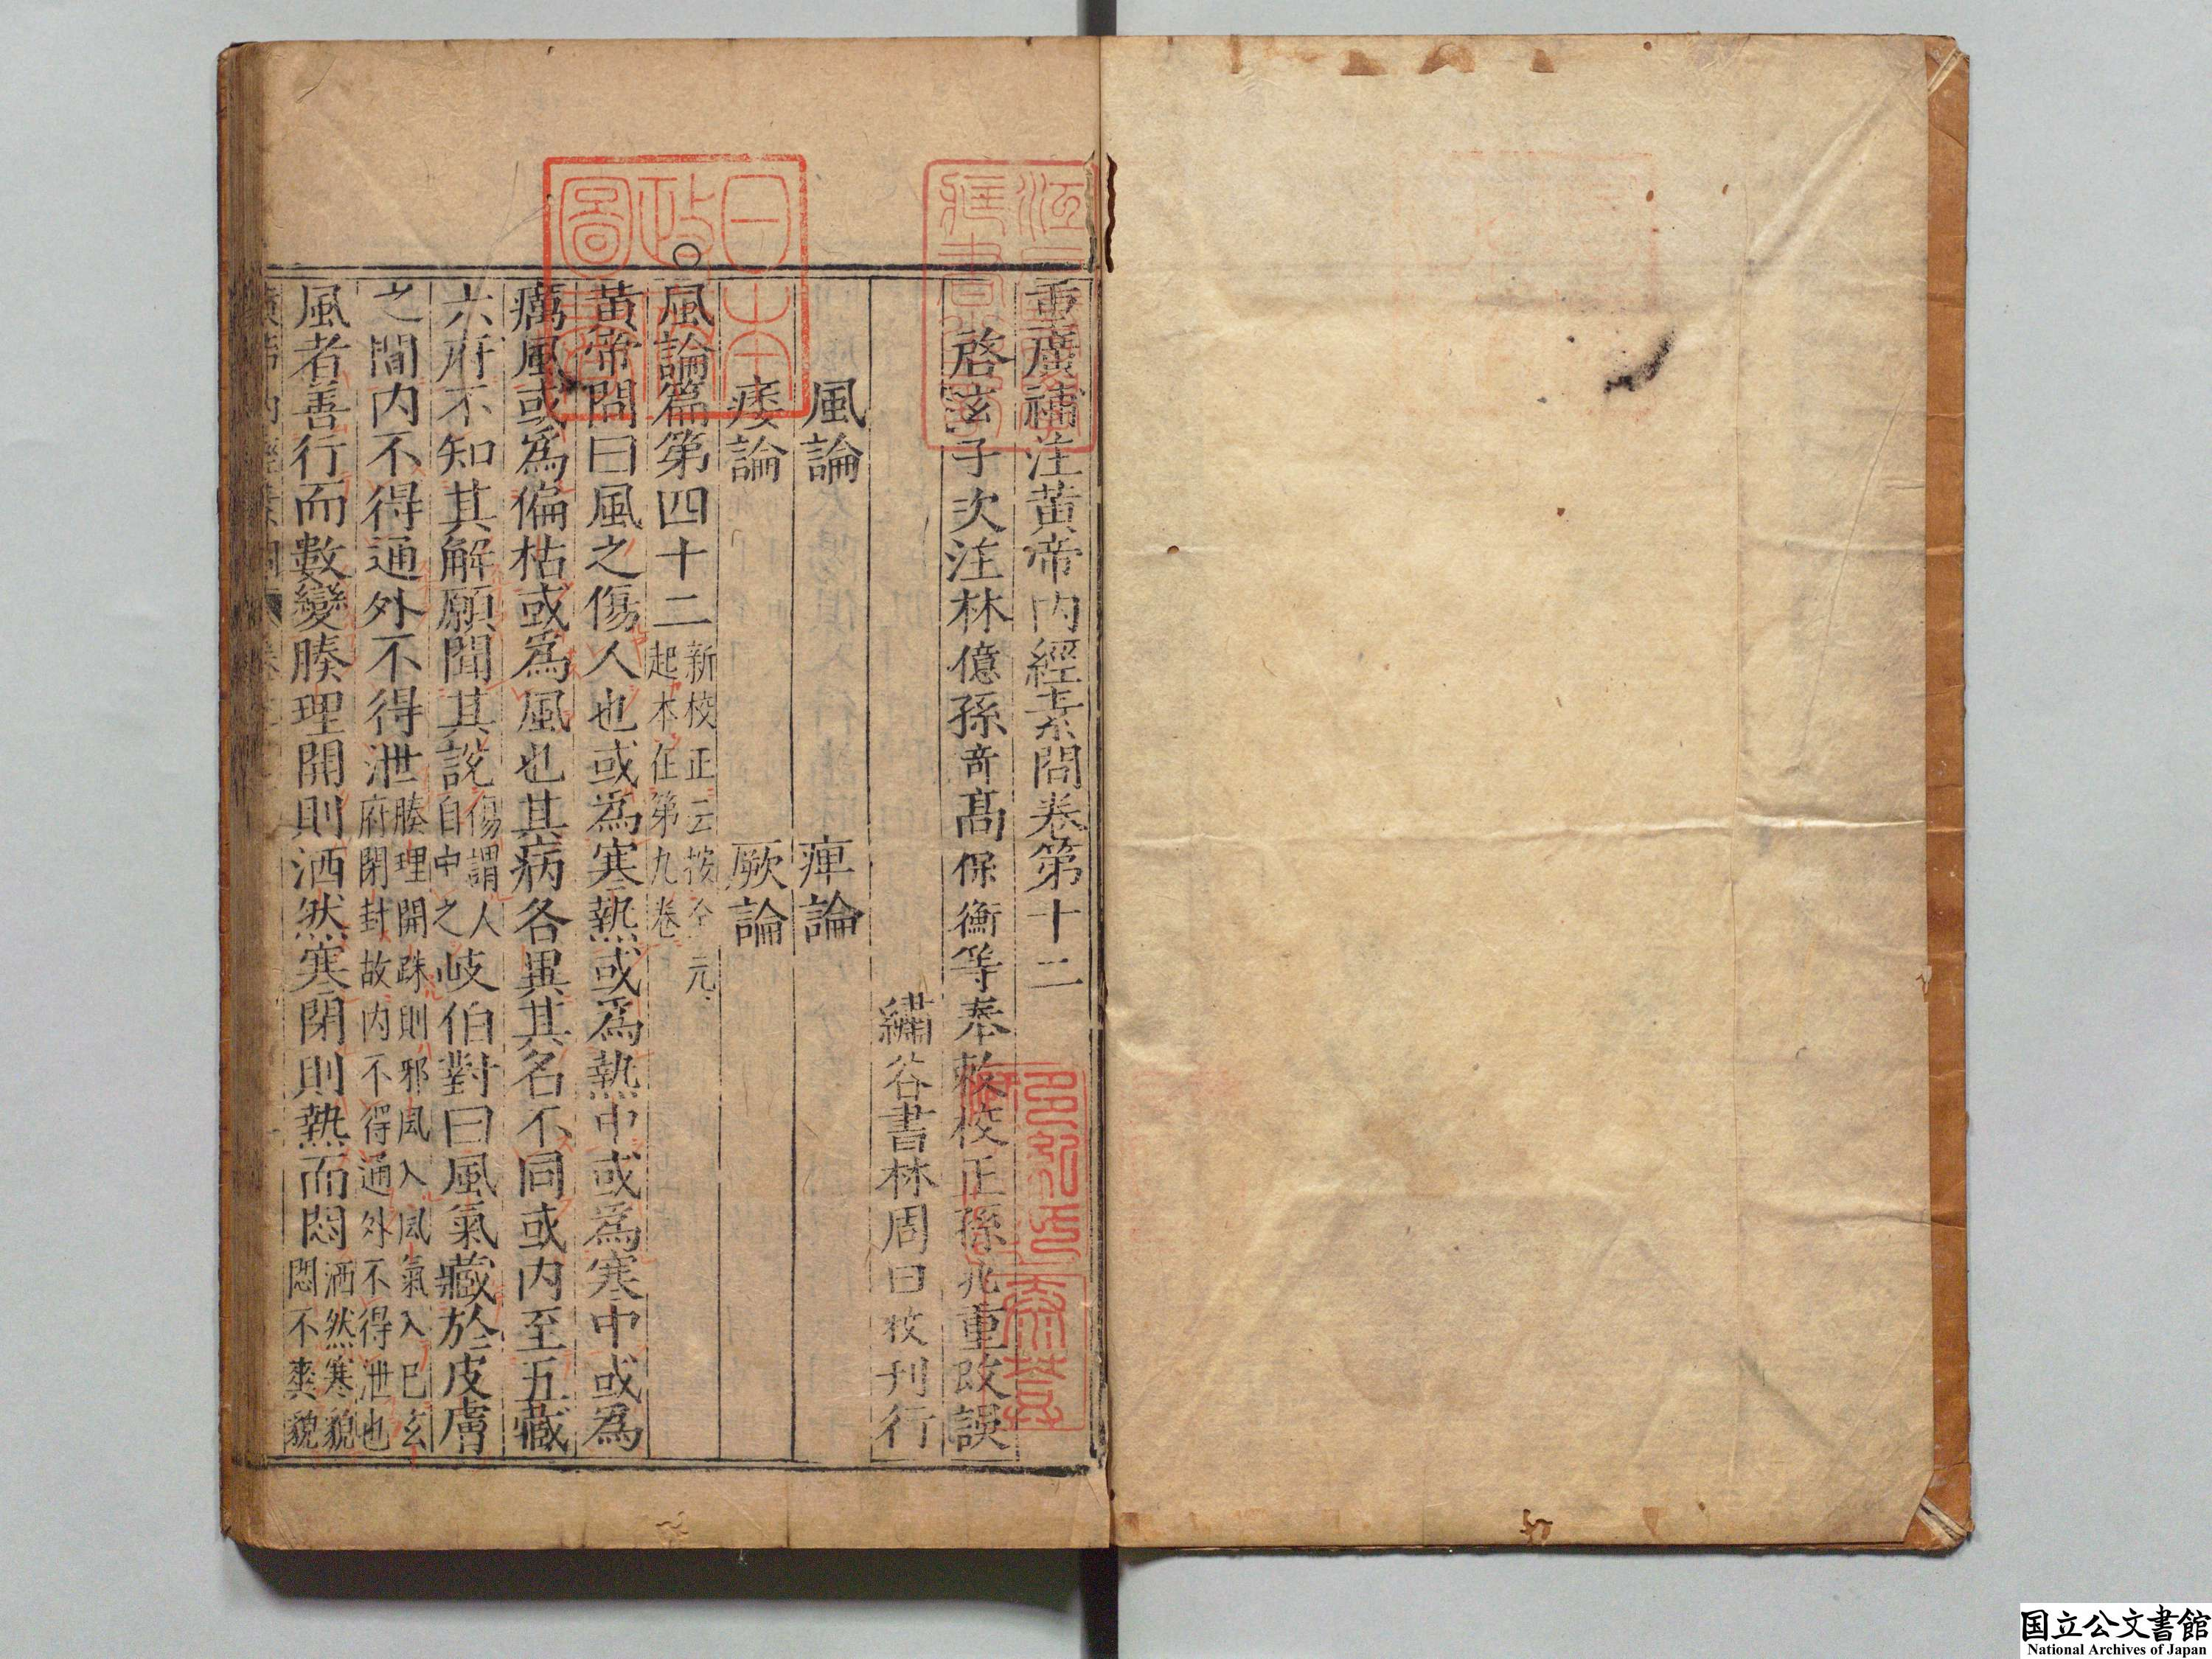 重廣補注黃帝內經素問卷第十二
啓玄子次注林億孫奇高保衡等奉敕校正孫兆重改誤
繡谷書林周曰校刊行
風論 痺論
痿論 厥論
○風論篇第四十二 新校正云按全元起本在第九卷
黃帝問曰風之傷人也或爲寒熱或爲熱中或爲寒中或爲
癘風或爲偏枯或爲風也其病各異其名不同或內至五藏
六府不知其解願聞其說 傷謂人自中之 岐伯對曰風氣藏於皮膚
之間內不得通外不得泄 腠理開踈則邪風入風氣入已玄府閉封故內不得通外不得泄也
風者善行而數變腠理開則洒然寒閉則熱而悶 洒然寒貌悶不爽貌
国立公文書館
National Archives of Japan